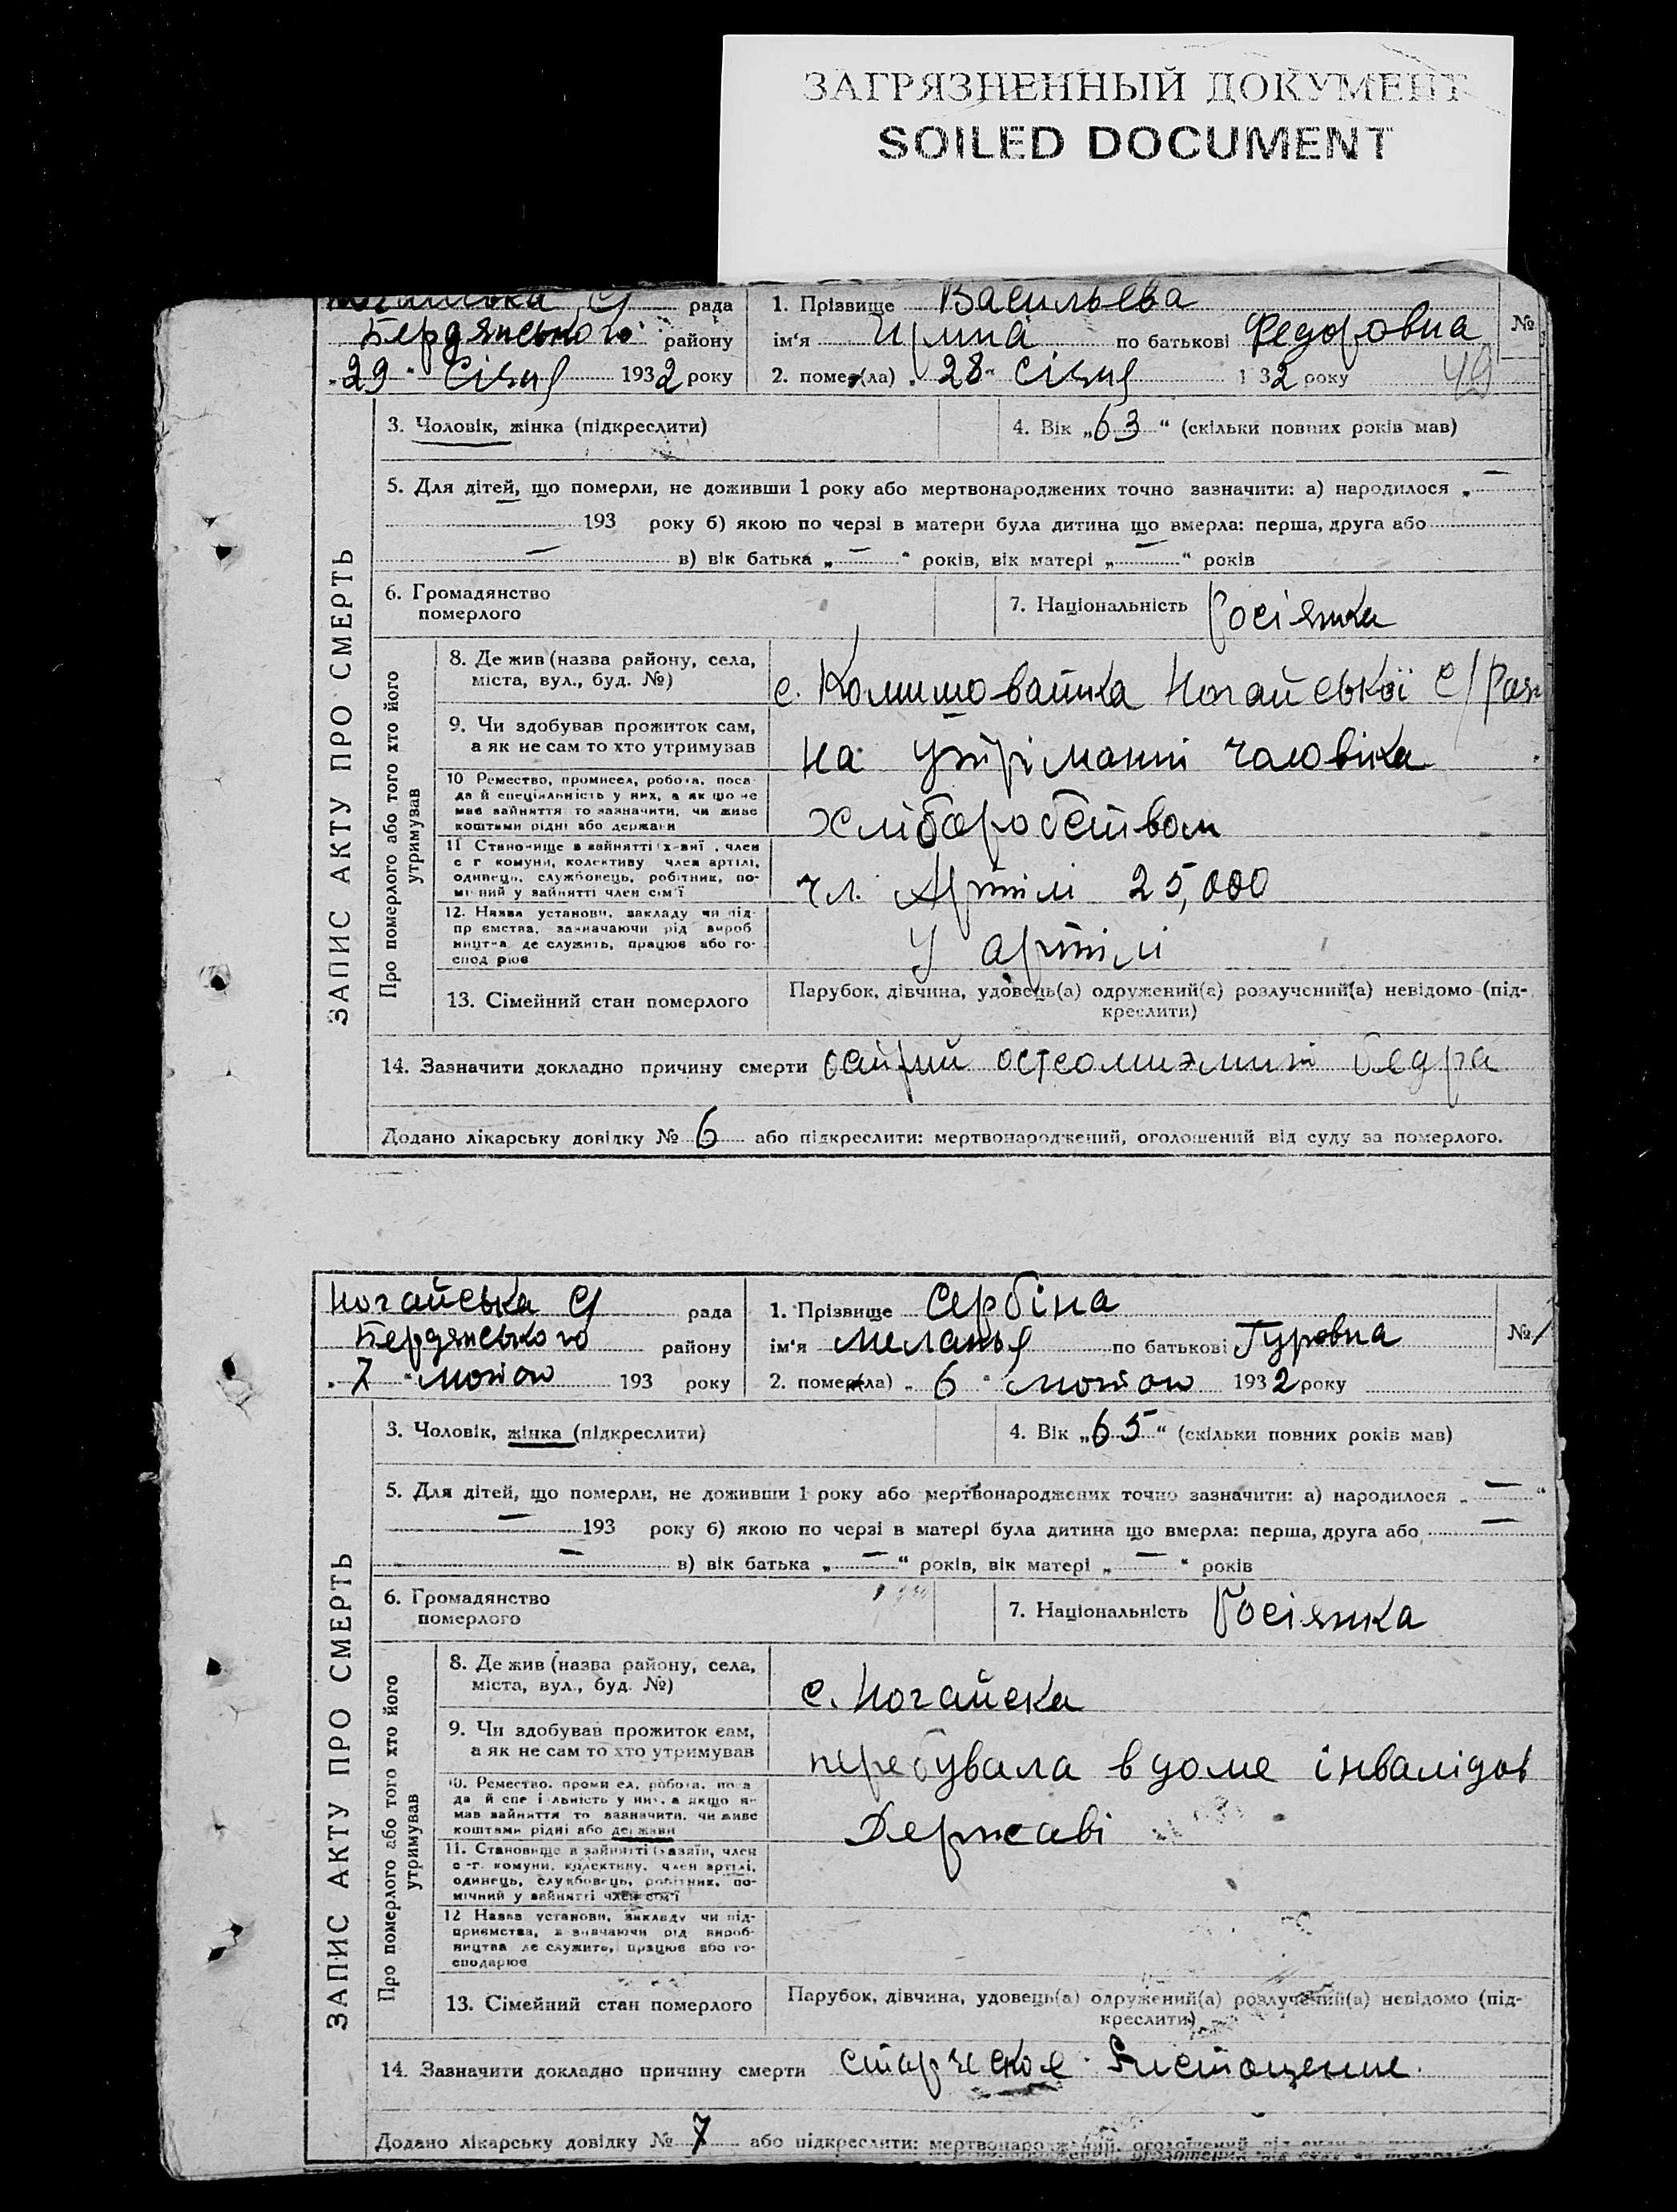 ЗАГРЯЗНЕННЫЙ ДОКУМЕНТ
SOILED DOCUMENT
ЗАПИС АКТУ ПРО СМЕРТЬ
Ногайська С рада
Бердянського району
„29“ Січня 1932 року
1. Прізвище Васильева
ім'я Ирина по батькові Федоровна №
2. поме(ла) „28“ Січня 1932 року 49
3. Чоловік, жінка (підкреслити)
4. Вік „63“ (скільки повних років мав)
5. Для дітей, що померли, не доживши 1 року або мертвонароджених точно зазначити: а) народилося „ —
193 року б) якою по черзі в матери була дитина що вмерла: перша, друга або
— в) вік батька „ — “ років, вік матері „ — “ років
6. Громадянство
померлого
7. Національність Росіянка
Про померлого або того хто його
утримував
8. Де жив (назва району, села,
міста, вул., буд. №)
с. Комишовайтка Ногайської С/Рази
9. Чи здобував прожиток сам,
а як не сам то хто утримував
на утріманні чоловіка
10 Ремество, промисел, робота, поса-
да й спеціяльність у них, а як що не
має зайняття то зазначити, чи живе
коштами рідні або держави
хліборобством
11 Становище в зайнятті член
с г комуни, колективу член артілі,
одинець, службовець, робітник, по-
мічний у зайнятті член сім'ї
чл. Артілі 25,000
12. Назва установи, закладу чи під-
приємства, зазначаючи рід вироб
ництва де служить, працює або го-
сподарює
У артілі
13. Сімейний стан померлого
Парубок, дівчина, удовець(а) одружений(а) розлучений(а) невідомо (під-
креслити)
14. Зазначити докладно причину смерти острий остеомиэлит бедра
Додано лікарську довідку № 6 або підкреслити: мертвонароджений, оголошений від суду за померлого.
ЗАПИС АКТУ ПРО СМЕРТЬ
Ногайська С рада
Бердянського району
„7“ лютого 193 року
1. Прізвище Сербіна
ім'я Меланья по батькові Гуровна №
2. поме(ла) „6“ лютого 1932 року
3. Чоловік, жінка (підкреслити)
4. Вік „65“ (скільки повних років мав)
5. Для дітей, що померли, не доживши 1 року або мертвонароджених точно зазначити: а) народилося „ — “
— 193 року б) якою по черзі в матері була дитина що вмерла: перша, друга або —
— в) вік батька „ — “ років, вік матері „ — “ років
6. Громадянство
померлого
7. Національність Росіянка
Про померлого або того хто його
утримував
8. Де жив (назва району, села,
міста, вул., буд. №)
с. Ногайска
9. Чи здобував прожиток сам,
а як не сам то хто утримував
перебувала в доме інвалідов
10. Ремество, промисел, робота, поса
да й спеціяльність у них, а якщо не
мав зайняття то зазначити, чи живе
коштами рідні або держави
Державі
11. Становище в зайнятті (хазяїн, член
с-г. комуни, колективу, член артілі,
одинець, службовець, робітник, по-
мічний у зайнятті член сім'ї
12 Назва установи, закладу чи під-
приємства, зазначаючи рід вироб-
ництва де служить, працює або го-
сподарює
13. Сімейний стан померлого
Парубок, дівчина, удовець(а) одружений(а) розлучений(а) невідомо (під-
креслити)
14. Зазначити докладно причину смерти старческое истощение.
Додано лікарську довідку № 7 або підкреслити: мертвонароджений, оголошений